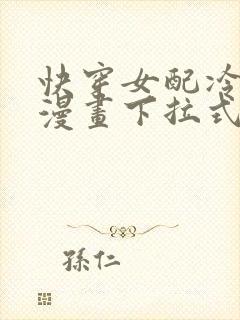 快穿女配冷
漫畫下拉式
孫仁